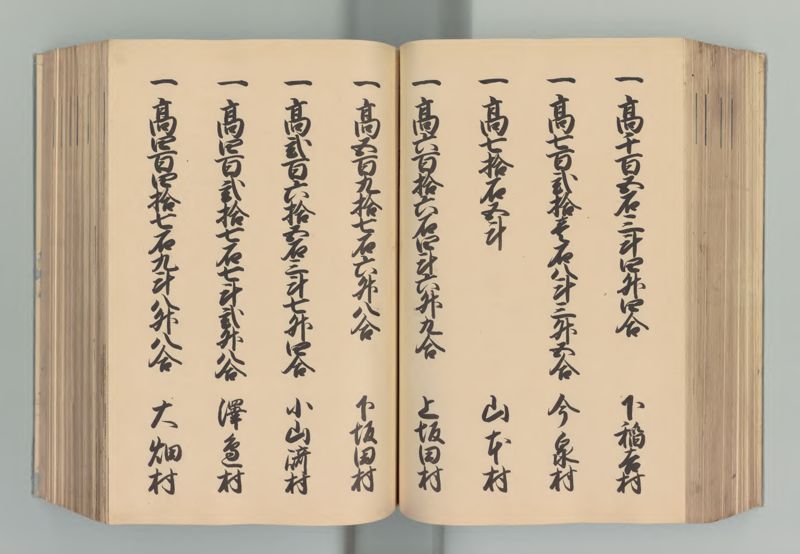 一 高千百五石三斗四升四合 下稲吉村
一 高七百弐拾壱石八斗三升五合 今泉村
一 高七拾石五斗 山本村
一 高六百拾六石四斗六升九合 上坂田村
一 高五百九拾七石六升八合 下坂田村
一 高弐百六拾五石三斗七升四合 小山崎村
一 高四百弐拾七石七斗弐升八合 澤邉村
一 高四百四拾七石九斗八升八合 大畑村